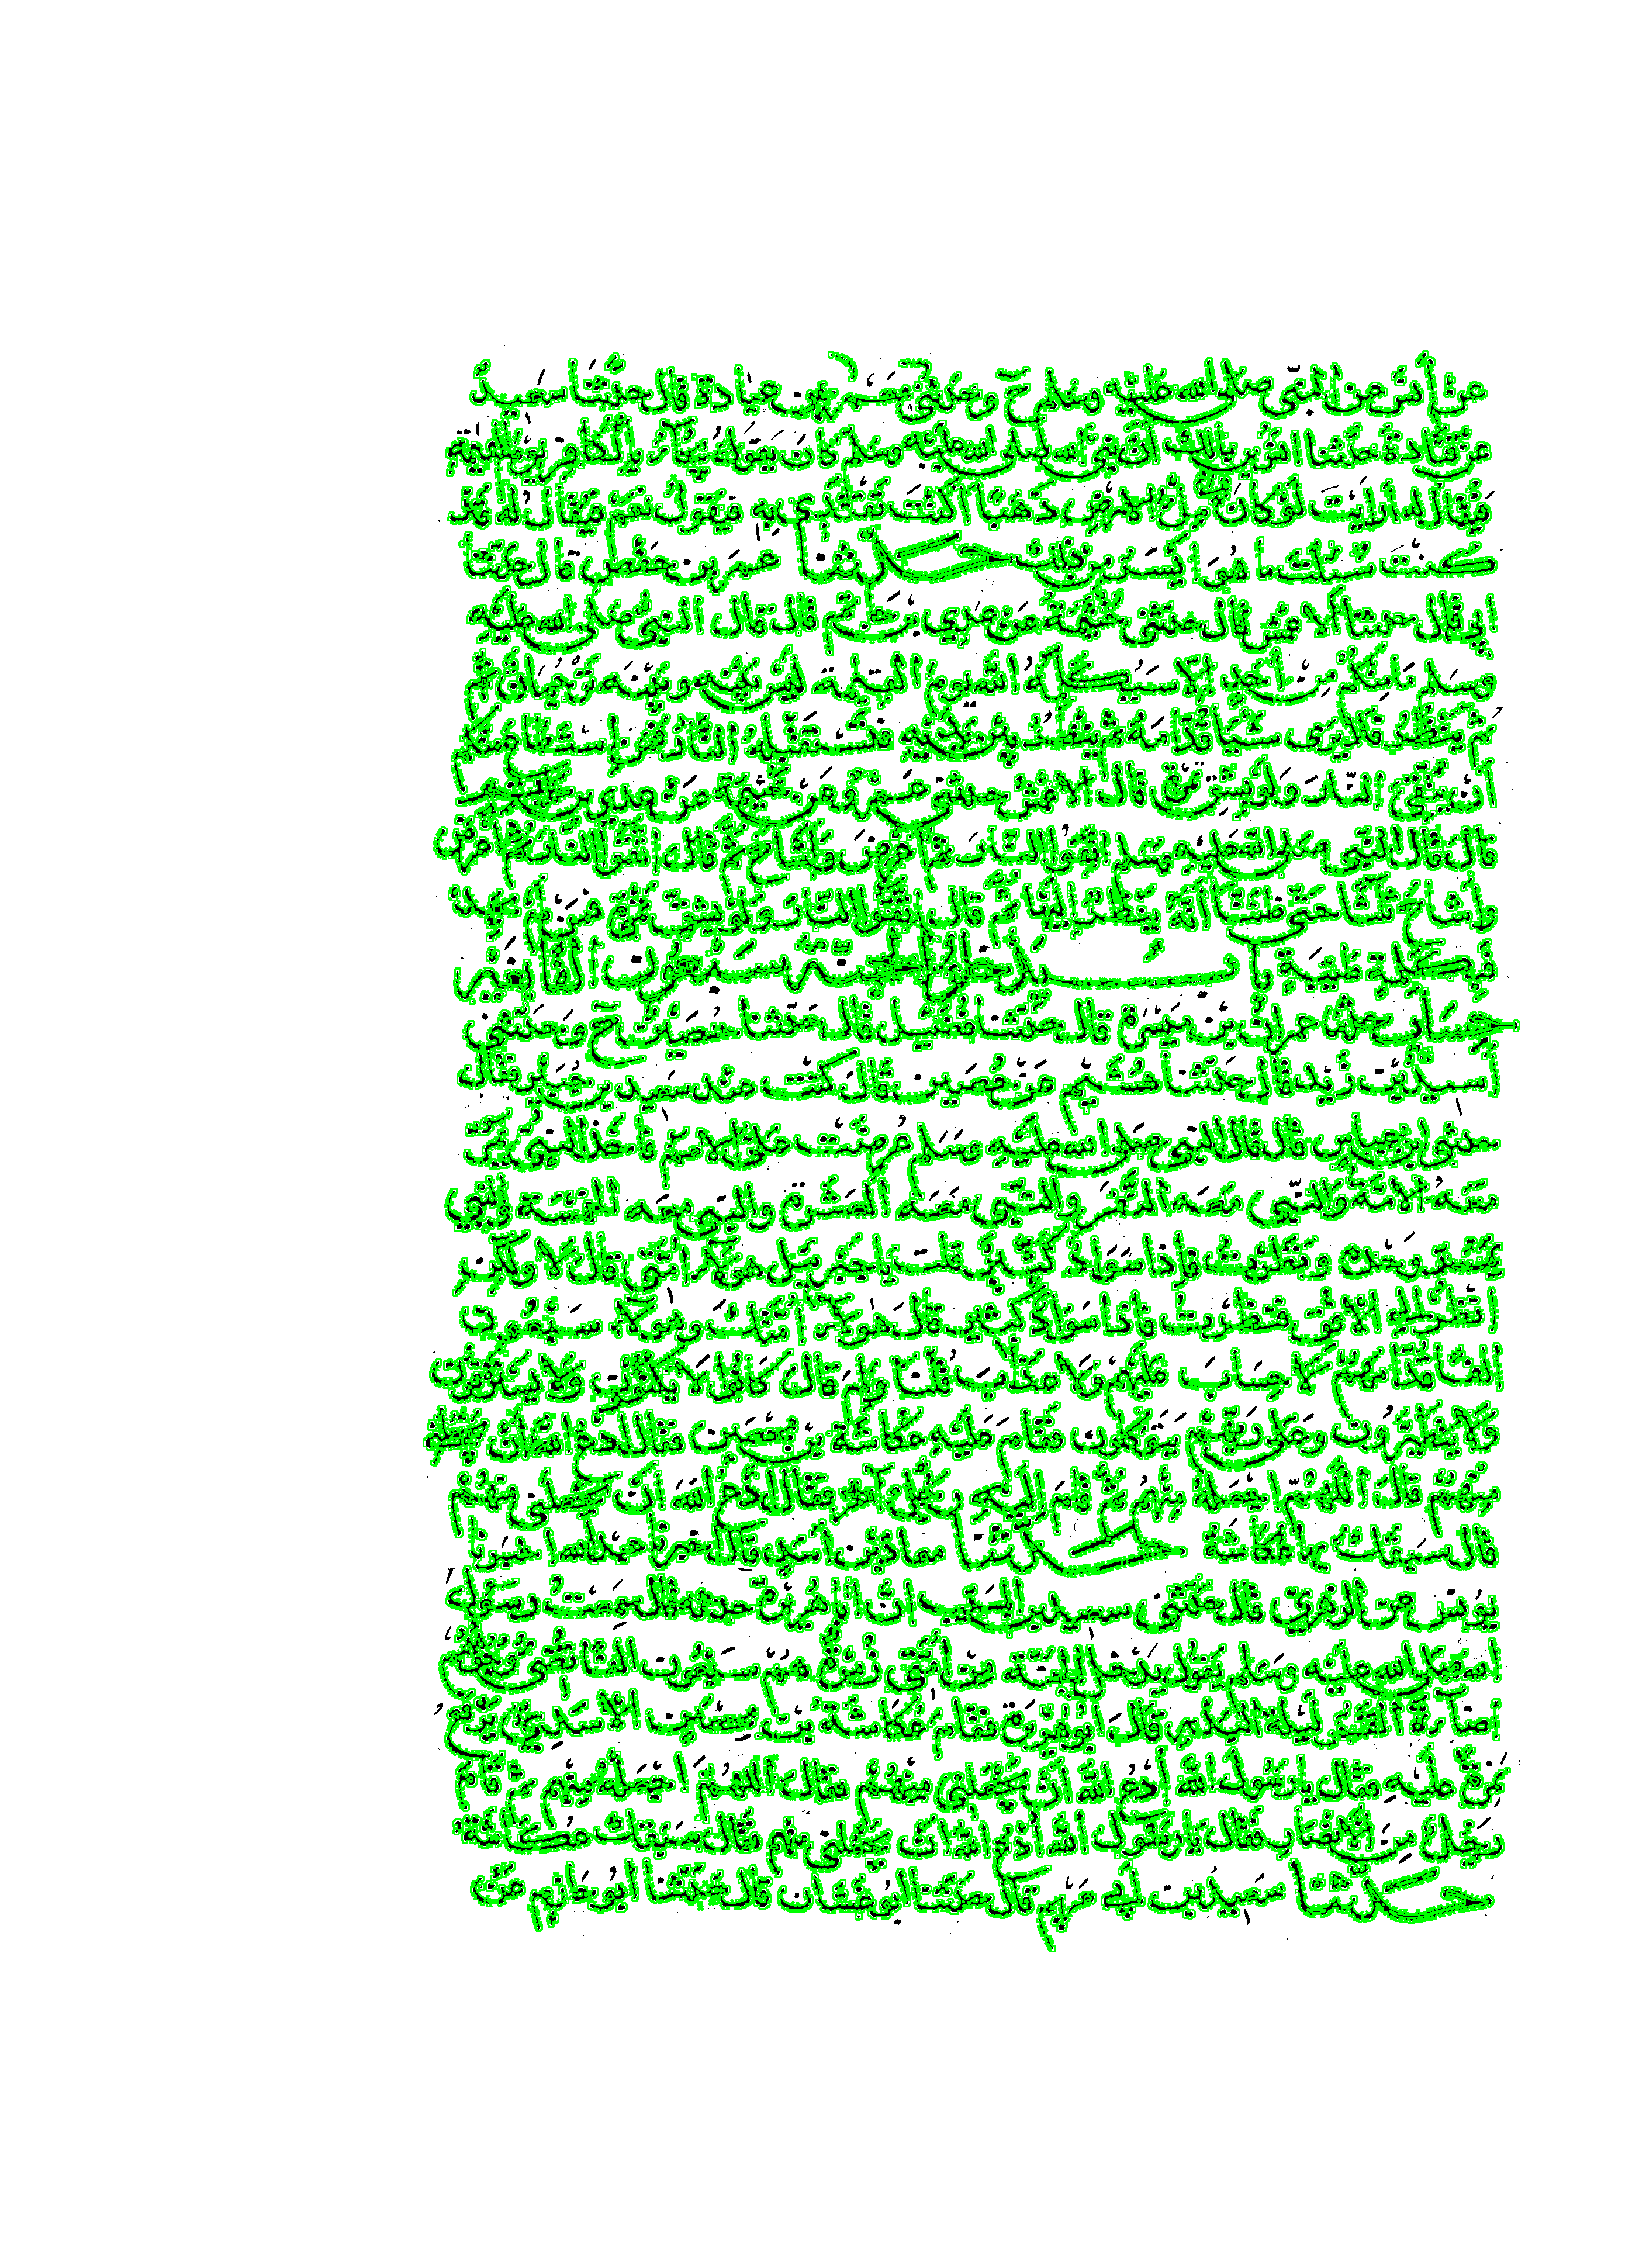 عن أنس عن النبي صلى الله عليه وسلم ح وحدثني معمر بن عبادة قال حدثنا سعيد
عن قتادة حدثنا انس بن مالك أن نبي الله صلى الله عليه وسلم كان يقول يجاء بالكافر يوم القيمة
فيقال له أرايت لو كان مل الارض ذهبا أكنت تفتدي به فيقول نعم فيقال له قد
كنت سئلت ما هو ايسر من ذلك حدثنا عمر بن حفص قال حدثنا
ابي قال حدثنا الاعمش قال حدثني خيثمة عن عدي بن حاتم قال قال النبي صلى الله عليه
وسلم ما منكم من أحد الا سيكلمه الله يوم القيمة ليس بينه وبينه ترجمان ثم
ثم ينظر فلا يرى شيئا قدامه ثم ينظر بين يديه فتستقبله النار فمن استطاع منكم
أن يتقي النار ولو بشق تمرة قال الاعمش حدثني عمرو عن خيثمة عن عدي بن حاتم
قال قال النبي صلى الله عليه وسلم اتقوا النار ثم أعرض وأشاح ثم قال اتقوا النار ثم أعرض
وأشاح ثلثا حتى ظننا أنه ينظر اليها ثم قال اتقوا النار ولو بشق تمرة فمن لم يجد
فبكلمة طيبة باب يدخل الجنة سبعون ألفا بغير
حساب حدثنا عمران بن ميسرة قال حدثنا ابن فضيل قال حدثنا حصين ح وحدثني
أسيد بن زيد قال حدثنا هشيم عن حصين قال كنت عند سعيد بن جبير فقال
حدثني ابن عباس قال قال النبي صلى الله عليه وسلم عرضت علي الامم فأخذ النبي يمر
معه الامة والنبي معه النفر والنبي معه العشرة والنبي معه الخمسة والنبي
يمر وحده ونظرت فإذا سواد كثير قلت يا جبريل هولاء امتي قال لا ولكن
انظر إلى الافق فنظرت فإذا سواد كثير قال هولاء امتك وهولاء سبعون
الفا قدامهم لا حساب عليهم ولا عذاب قلت ولم قال كانوا لا يكتوون ولا يسترقون
ولا يتطيرون وعلى ربهم يتوكلون فقام عليه عكاشة بن محصن فقال ادع الله أن يجعلني
منهم قال اللهم اجعله منهم ثم قام اليه رجل آخر فقال ادع الله أن يجعلني منهم
قال سبقك بها عكاشة حدثنا معاذ بن أسد قال اخبرنا عبد الله اخبرنا
يونس عن الزهري قال حدثني سعيد بن المسيب ان ابا هريرة حدثه قال سمعت رسول
الله صلى الله عليه وسلم يقول يدخل الجنة من أمتي زمرة هم سبعون الفا تضيء وجوههم
اضآءة القمر ليلة البدر قال أبو هريرة فقام عكاشة بن محصن الاسدي يرفع
نمرة عليه فقال يا رسول الله أدع الله أن يجعلني منهم فقال اللهم اجعله منهم ثم قام
رجل من الانصار فقال يا رسول الله أدع الله أن يجعلني منهم فقال سبقك عكاشة
حدثنا سعيد بن أبي مريم قال حدثنا ابو غسان قال حدثنا ابو حازم عن